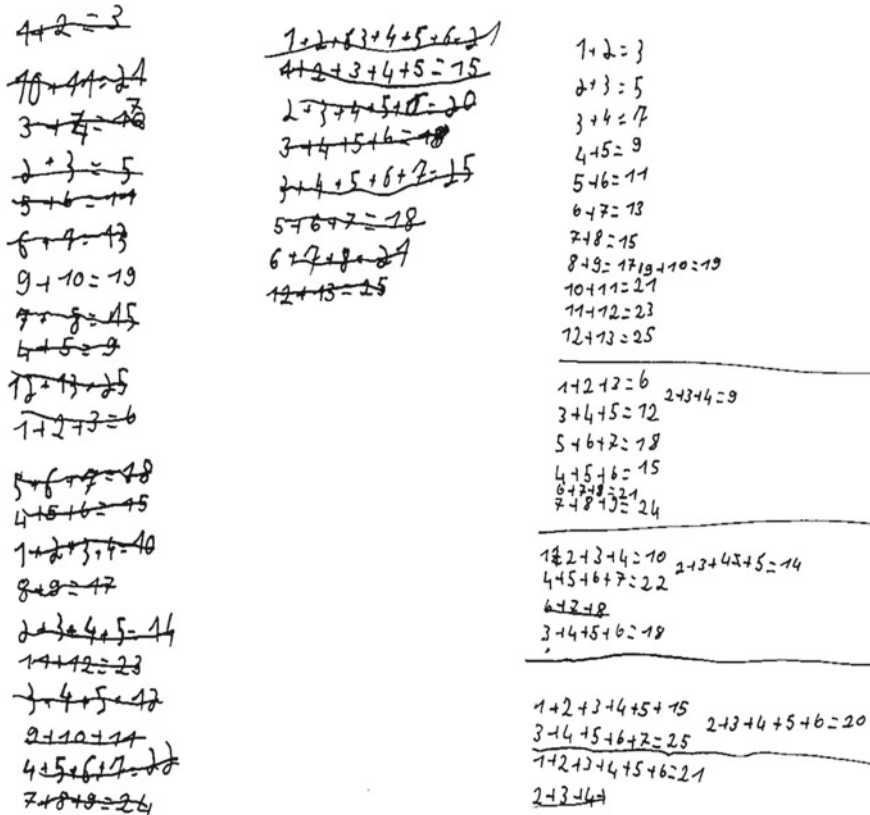 1+2=3
10+11=21
3+4=7
2+3=5
5+6=11
6+7=13
9+10=19
7+8=15
4+5=9
12+13=25
1+2+3=6
5+6+7=18
4+5+6=15
1+2+3+4=10
8+9=17
2+3+4+5=14
11+12=23
3+4+5=12
9+10+11
4+5+6+7=22
7+8+9=24
1+2+3+4+5+6=21
1+2+3+4+5=15
2+3+4+5+6=20
3+4+5+6=18
3+4+5+6+7=25
5+6+7=18
6+7+8=21
12+13=25
1+2=3
2+3=5
3+4=7
4+5=9
5+6=11
6+7=13
7+8=15
8+9=17 9+10=19
10+11=21
11+12=23
12+13=25
1+2+3=6
2+3+4=9
3+4+5=12
5+6+7=18
4+5+6=15
6+7+8=21
7+8+9=24
1+2+3+4=10
2+3+4+5=14
4+5+6+7=22
6+7+8
3+4+5+6=18
1+2+3+4+5+15
2+3+4+5+6=20
3+4+5+6+7=25
1+2+3+4+5+6=21
2+3+4+